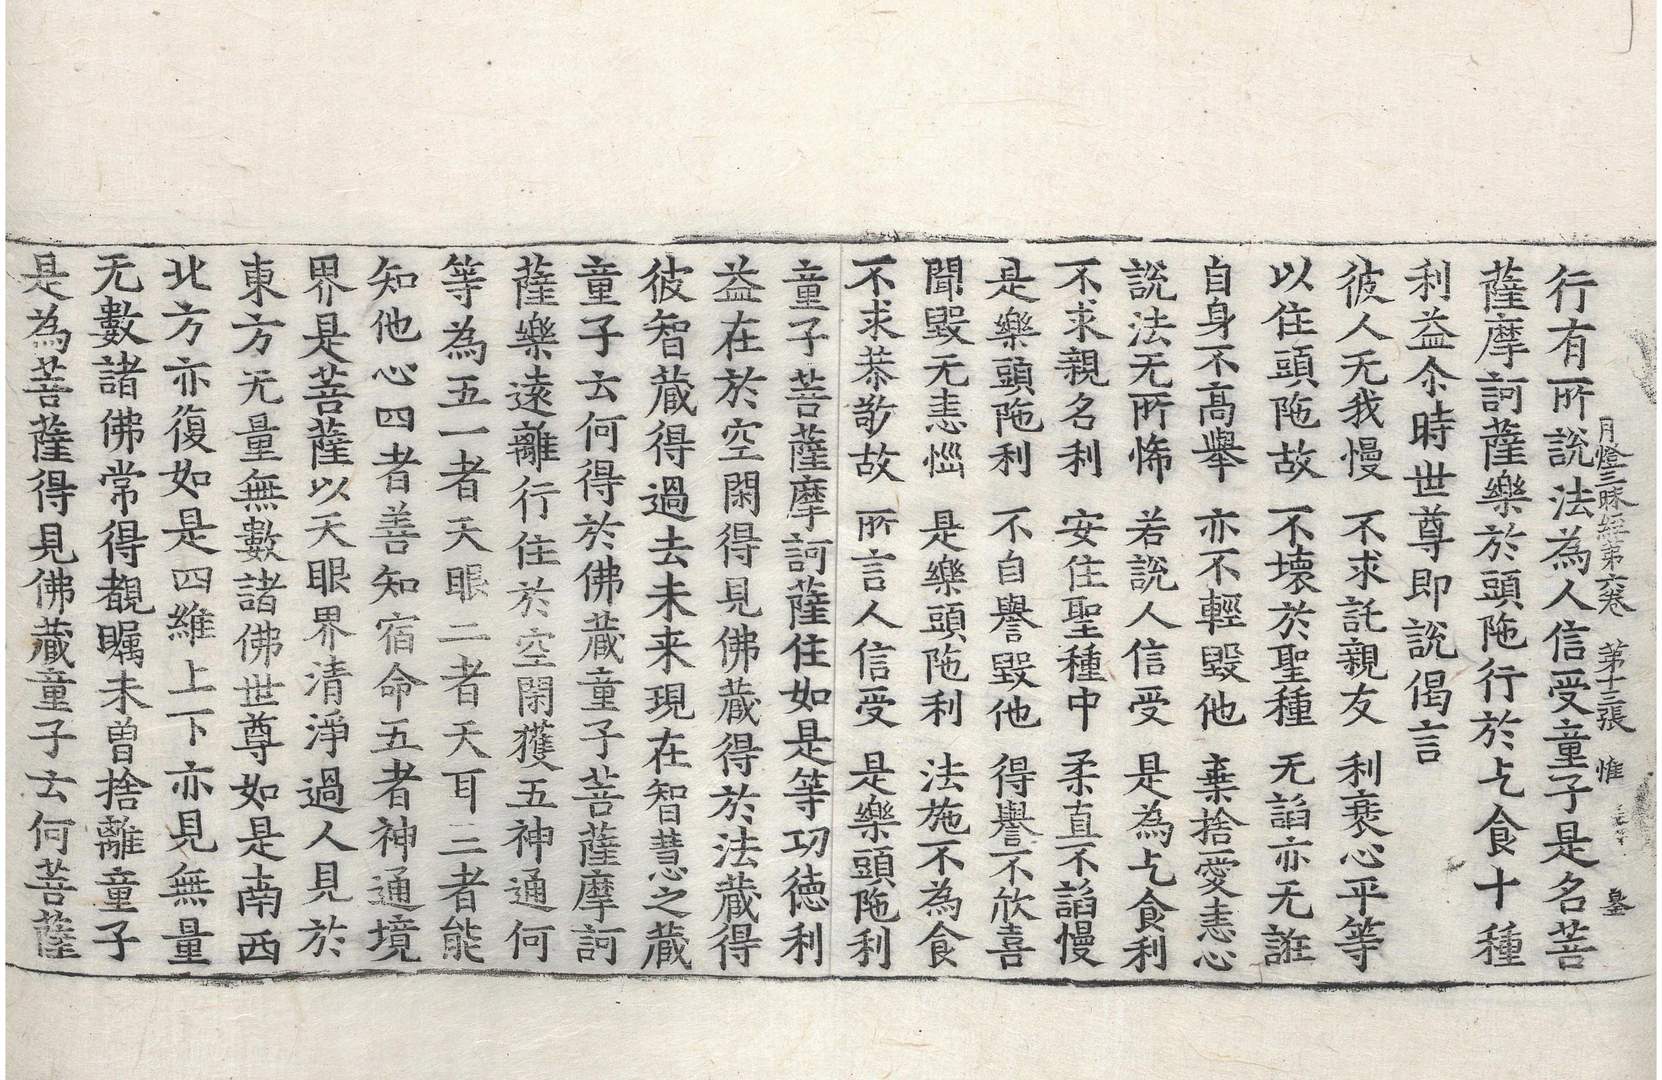 月燈三昧經第六卷 第十三張 惟
行有所說法為人信受童子是名菩
薩摩訶薩樂於頭陁行於乞食十種
利益尒時世尊即說偈言
彼人无我慢 不求託親友 利衰心平等
以住頭陁故 不壞於聖種 无諂亦无誑
自身不高舉 亦不輕毀他 棄捨愛恚心
說法无所怖 若說人信受 是為乞食利
不求親名利 安住聖種中 柔直不諂慢
是樂頭陁利 不自譽毀他 得譽不欣喜
聞毀无恚惱 是樂頭陁利 法施不為食
不求恭敬故 所言人信受 是樂頭陁利
童子菩薩摩訶薩住如是等功德利
益在於空閑得見佛藏得於法藏得
彼智藏得過去未来現在智慧之藏
童子云何得於佛藏童子菩薩摩訶
薩樂遠離行住於空閑獲五神通何
等為五一者天眼二者天耳三者能
知他心四者善知宿命五者神通境
界是菩薩以天眼界清淨過人見於
東方无量無數諸佛世尊如是南西
北方亦復如是四維上下亦見無量
无數諸佛常得覩矚未曾捨離童子
是為菩薩得見佛藏童子云何菩薩